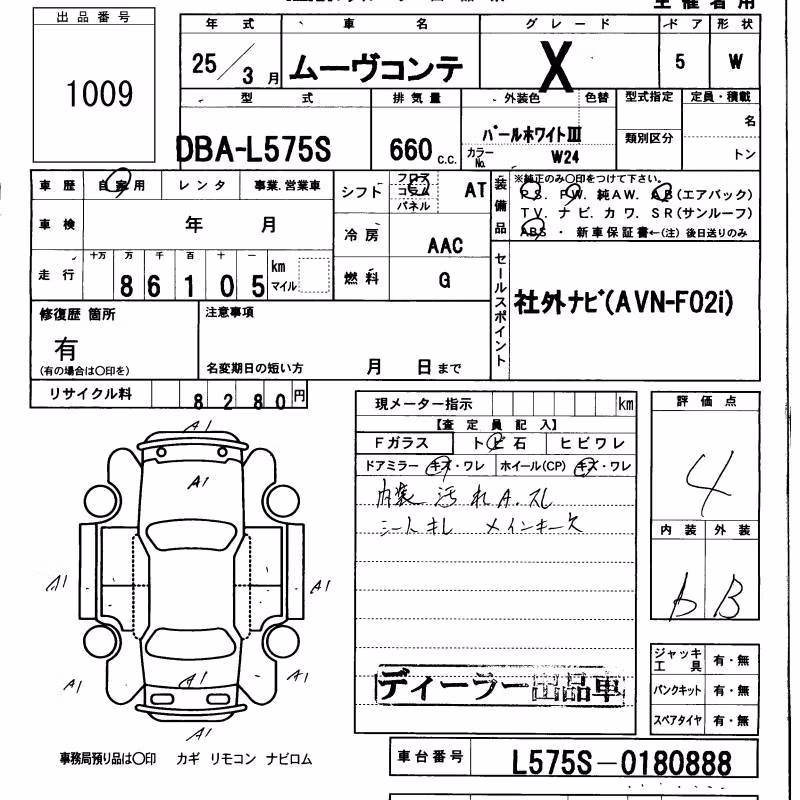 主催者用
出品番号
1009
年式 車名 グレード ドア 形状
25/3月 ムーヴコンテ X 5 W
型式 排気量 外装色 色替 型式指定 定員・積載
DBA-L575S 660c.c. パールホワイトⅢ 類別区分 名
カラーNo. W24 トン
車歴 自家用 レンタ 事業.営業車
シフト フロア コラム パネル AT
装備品 ※純正のみ○印をつけて下さい。
PS. PW. 純AW. AB(エアバック)
TV. ナビ. カワ. SR(サンルーフ)
ABS ・ 新車保証書←(注) 後日送りのみ
車検 年 月
冷房 AAC
走行 十万 万 千 百 十 一
86105 km マイル
燃料 G
セールスポイント
社外ナビ(AVN-F02i)
修復歴 箇所
有
(有の場合は○印を)
注意事項
名変期日の短い方 月 日まで
リサイクル料 8280円
現メーター指示 km
【査定員記入】
Fガラス トビ石 ヒビワレ
ドアミラー キズ・ワレ ホイール(CP) キズ・ワレ
内装 汚れA.スレ
シートキレ メインキー欠
ディーラー出品車
評価点
4
内装 外装
b B
A1
A1
A1 A1
A1 A1 A1
A1
ジャッキ工具 有・無
パンクキット 有・無
スペアタイヤ 有・無
事務局預り品は○印 カギ リモコン ナビロム
車台番号 L575S-0180888